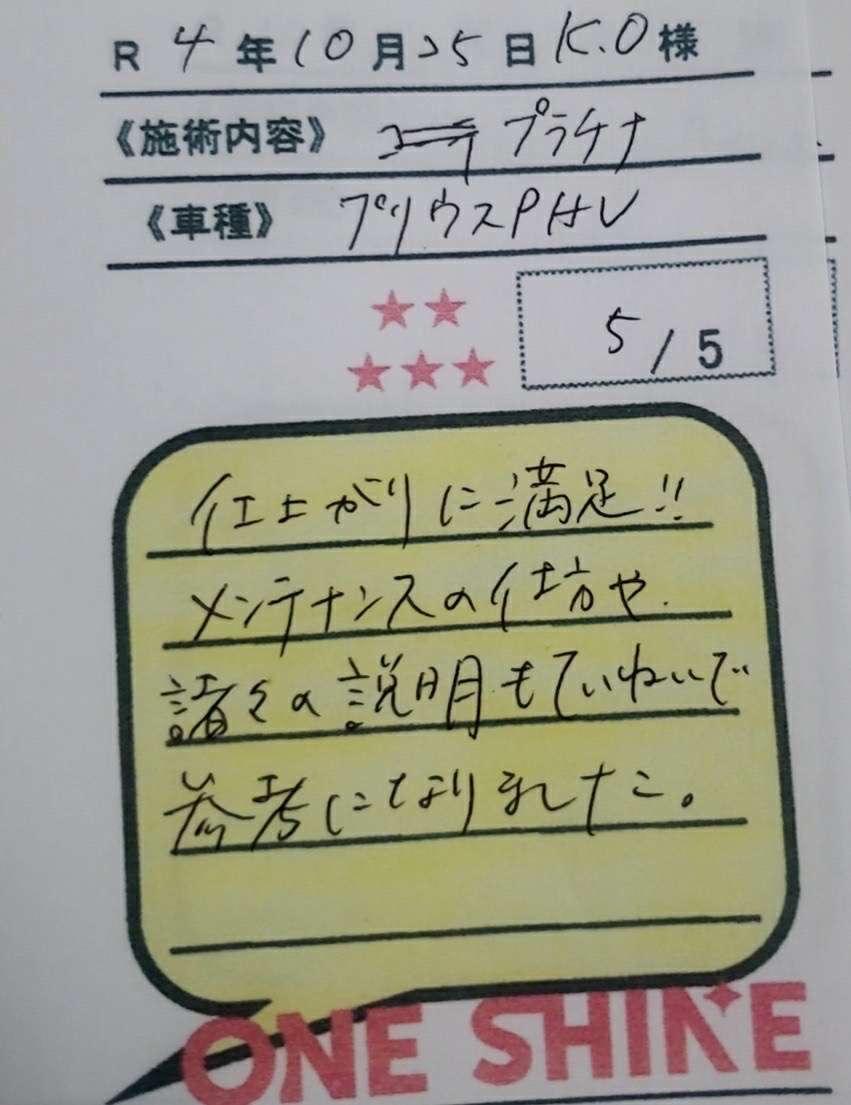 R 4年10月25日 K.O様
《施術内容》 プラチナ
《車種》 プリウスPHV
5/5
仕上がりに満足!!
メンテナンスの仕方や
諸々の説明もていねいで
参考になりました。
ONE SHINE